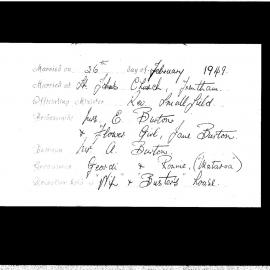 Married on 26th day of February 1949.
Married at St Johns Church, Trentham.
Officiating Minister Rev Smallfield.
Bridesmaids Mrs. E. Burton
& Flower Girl, Jane Burton
Mr A. Burton.
Groomsmen George & Ronnie, (Mataroa)
Reception held at "N.Z." & "Busters" House.